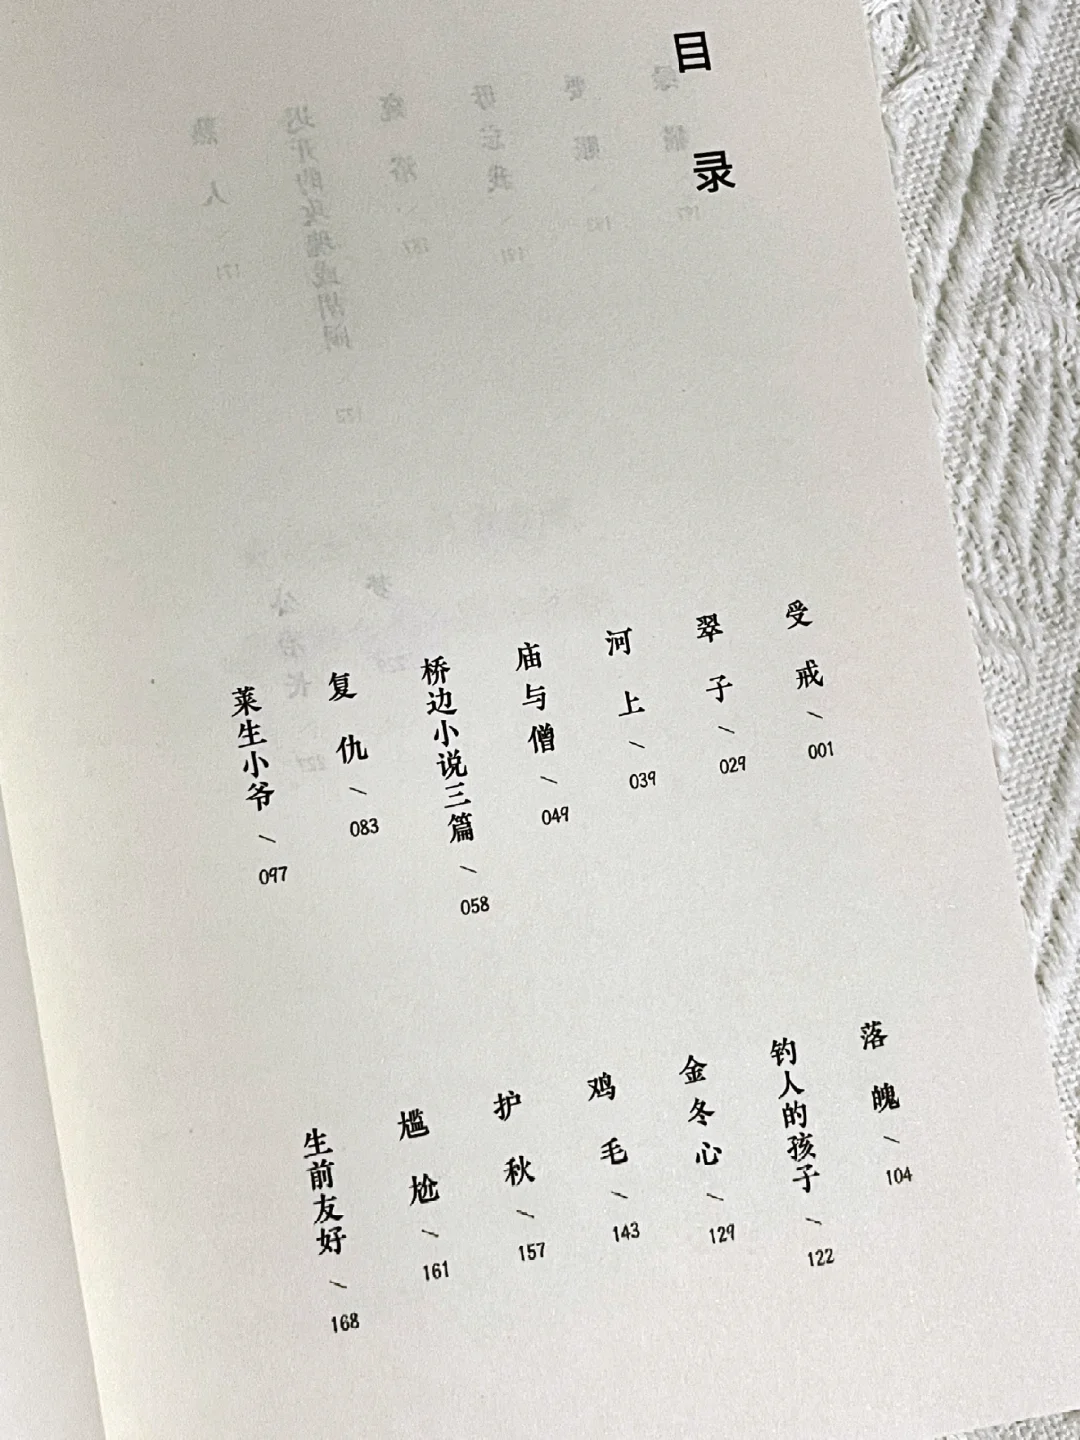 目录
受戒 / 001
翠子 / 029
河上 / 039
庙与僧 / 049
桥边小说三篇 / 058
复仇 / 083
莱生小爷 / 097
落魄 / 104
钓人的孩子 / 122
金冬心 / 129
鸡毛 / 143
护秋 / 157
尴尬 / 161
生前友好 / 168